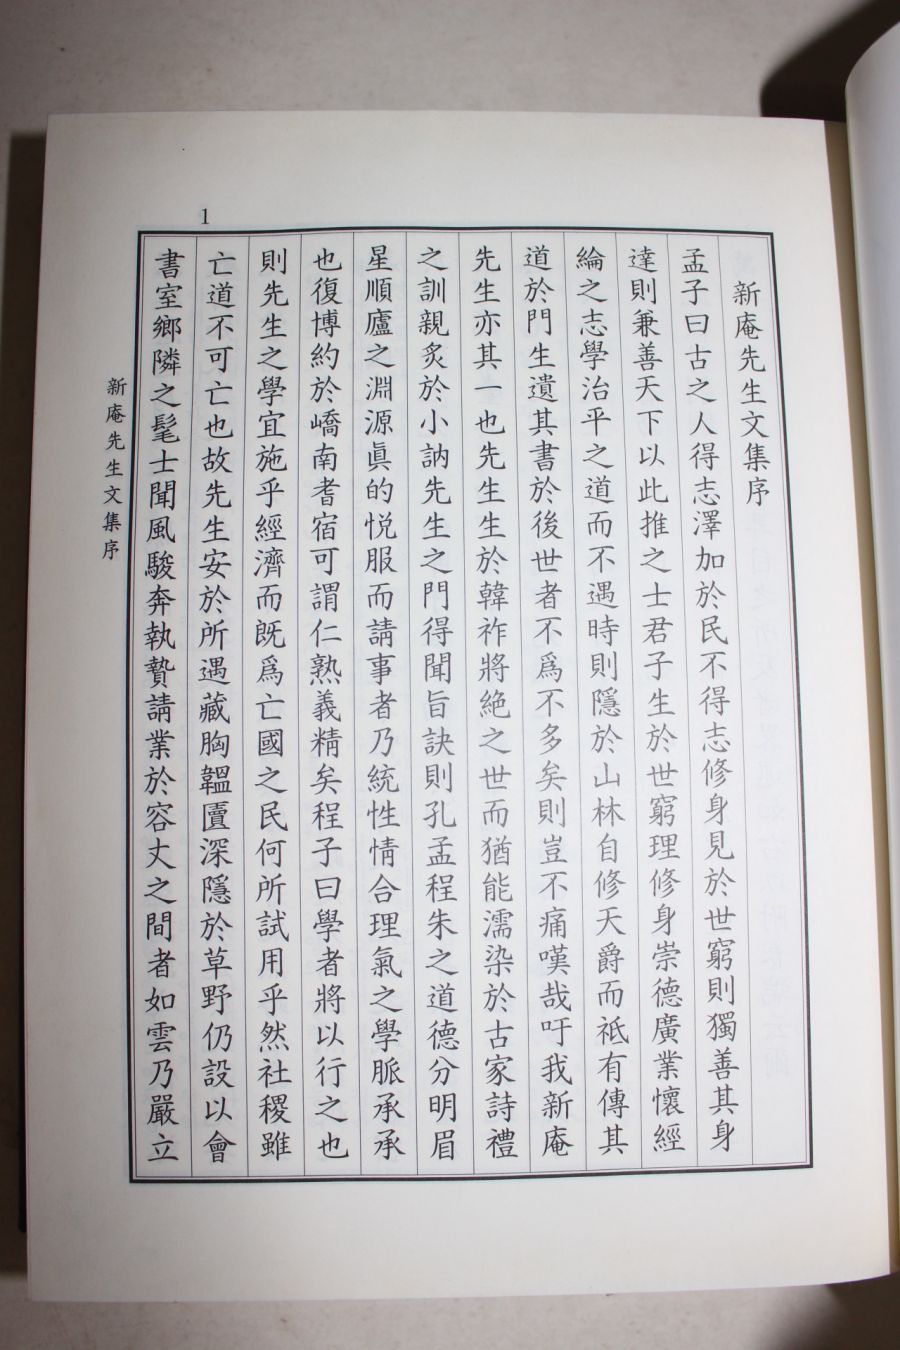 新庵先生文集序
孟子曰古之人得志澤加於民不得志修身見於世窮則獨善其身
達則兼善天下以此推之士君子生於世窮理修身崇德廣業懷經
綸之志學治平之道而不遇時則隱於山林自修天爵而祗有傳其
道於門生遺其書於後世者不爲不多矣則豈不痛嘆哉吁我新庵
先生亦其一也先生生於韓祚將絶之世而猶能濡染於古家詩禮
之訓親炙於小訥先生之門得聞旨訣則孔孟程朱之道德分明眉
星順廬之淵源眞的悅服而請事者乃統性情合理氣之學脈承承
也復博約於嶠南耆宿可謂仁熟義精矣程子曰學者將以行之也
則先生之學宜施乎經濟而既爲亡國之民何所試用乎然社稷雖
亡道不可亡也故先生安於所遇藏胸韞匵深隱於草野仍設以會
書室鄉隣之髦士聞風駿奔執贄請業於容丈之間者如雲乃嚴立
新庵先生文集序
1